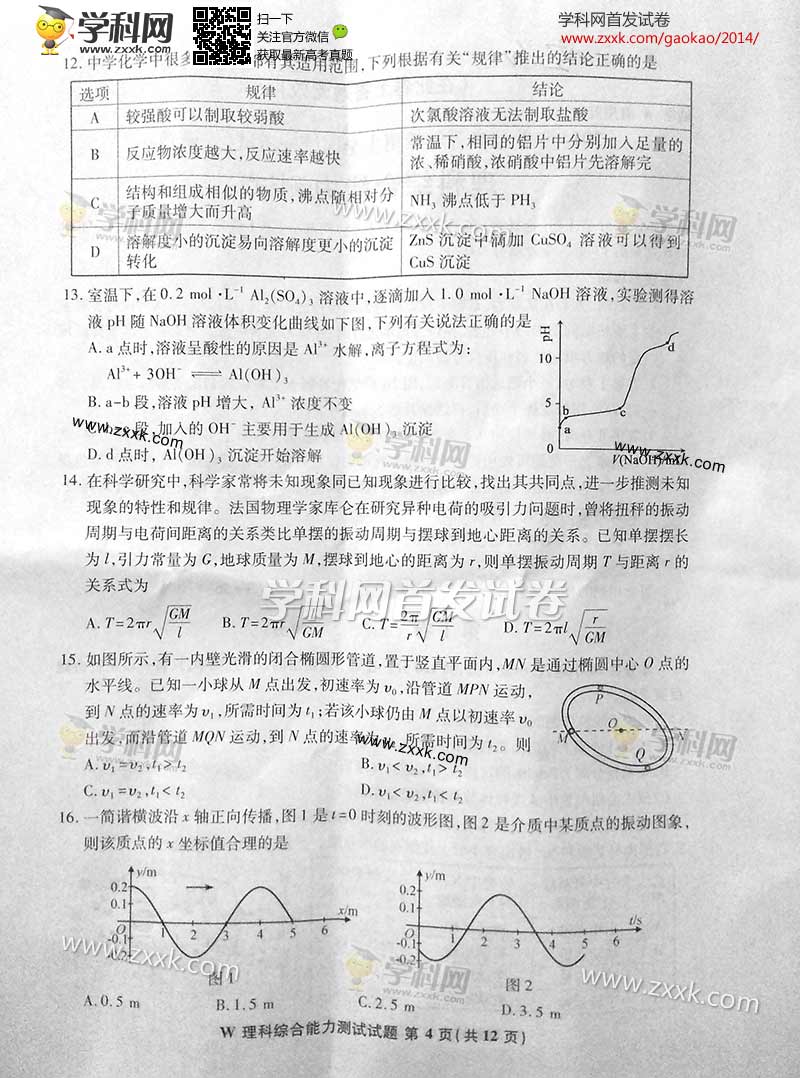 学科网
www.zxxk.com
扫一下
关注官方微信
获取最新高考真题
学科网首发试卷
www.zxxk.com/gaokao/2014/
12.中学化学中很多 都有其适用范围,下列根据有关“规律”推出的结论正确的是
选项 规律 结论
A 较强酸可以制取较弱酸 次氯酸溶液无法制取盐酸
B 反应物浓度越大,反应速率越快 常温下,相同的铝片中分别加入足量的
浓、稀硝酸,浓硝酸中铝片先溶解完
C 结构和组成相似的物质,沸点随相对分
子质量增大而升高 NH₃ 沸点低于 PH₃
D 溶解度小的沉淀易向溶解度更小的沉淀
转化 ZnS 沉淀中滴加 CuSO₄ 溶液可以得到
CuS 沉淀
13.室温下,在0.2 mol·L⁻¹ Al₂(SO₄)₃ 溶液中,逐滴加入 1.0 mol·L⁻¹ NaOH 溶液,实验测得溶
液 pH 随 NaOH 溶液体积变化曲线如下图,下列有关说法正确的是
A. a 点时,溶液呈酸性的原因是 Al³⁺ 水解,离子方程式为:
Al³⁺ + 3OH⁻ ⇌ Al(OH)₃
B. a-b 段,溶液 pH 增大, Al³⁺ 浓度不变
段,加入的 OH⁻ 主要用于生成 Al(OH)₃ 沉淀
D. d 点时, Al(OH)₃ 沉淀开始溶解
pH
10
5
0
a
b
c
d
V(NaOH)/
14.在科学研究中,科学家常将未知现象同已知现象进行比较,找出其共同点,进一步推测未知
现象的特性和规律。法国物理学家库仑在研究异种电荷的吸引力问题时,曾将扭秤的振动
周期与电荷间距离的关系类比单摆的振动周期与摆球到地心距离的关系。已知单摆摆长
为 l,引力常量为 G,地球质量为 M,摆球到地心的距离为 r,则单摆振动周期 T 与距离 r 的
关系式为
学科网首发试卷
A. T=2πr√(GM/l) B. T=2πr√(l/GM) C. T=2π/r √(GM/l) D. T=2πl√(r/GM)
15.如图所示,有一内壁光滑的闭合椭圆形管道,置于竖直平面内,MN 是通过椭圆中心 O 点的
水平线。已知一小球从 M 点出发,初速率为 v₀,沿管道 MPN 运动,
到 N 点的速率为 v₁,所需时间为 t₁;若该小球仍由 M 点以初速率 v₀
出发,而沿管道 MQN 运动,到 N 点的速率为 所需时间为 t₂。则
A. v₁=v₂,t₁>t₂ B. v₁<v₂,t₁>t₂
C. v₁=v₂,t₁<t₂ D. v₁<v₂,t₁<t₂
P
M
O
N
Q
16.一简谐横波沿 x 轴正向传播,图 1 是 t=0 时刻的波形图,图 2 是介质中某质点的振动图象,
则该质点的 x 坐标值合理的是
y/m
0.2
0.1
O
-0.1
-0.2
1 2 3 4 5 6
x/m
图 1
y/m
0.2
0.1
O
-0.1
-0.2
1 2 3 4 5 6
t/s
图 2
A. 0.5 m B. 1.5 m C. 2.5 m D. 3.5 m
W 理科综合能力测试试题 第 4 页(共 12 页)